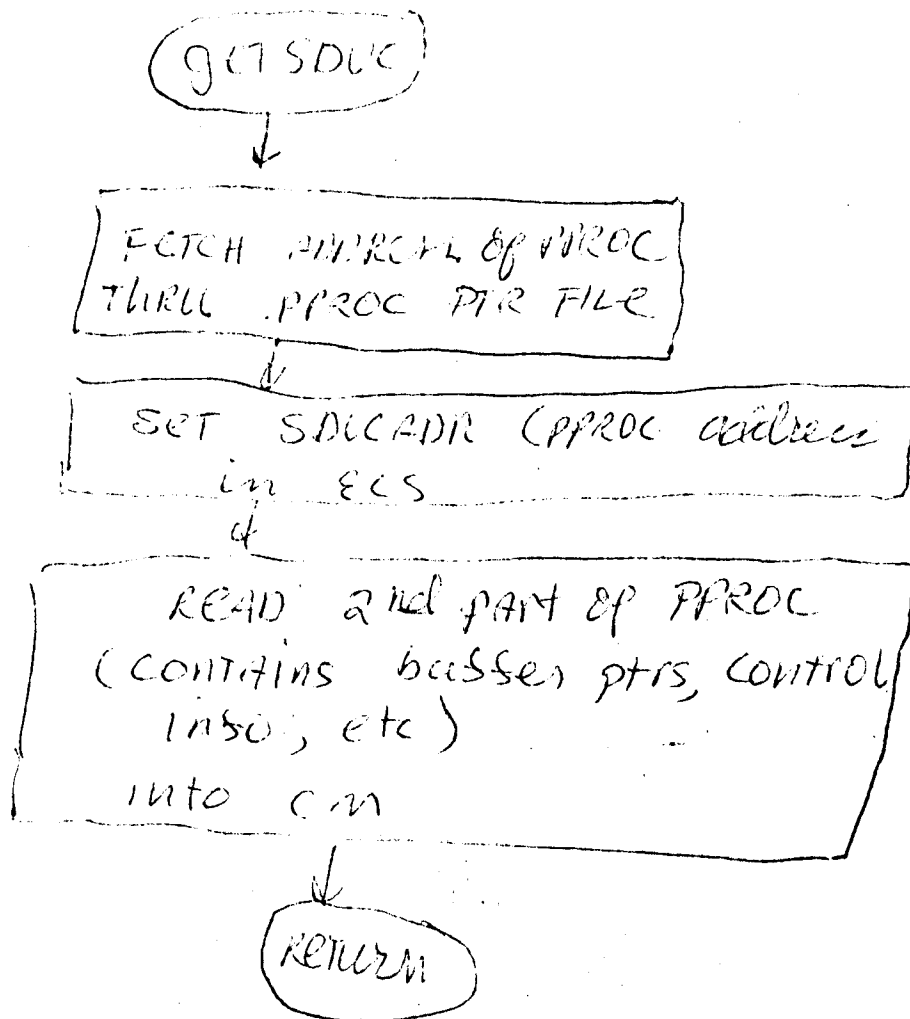 getSDLC
FETCH ADDRESS OF PPROC
THRU PPROC PTR FILE
SET SDLCADR (PPROC address
in ECS
READ 2nd part of PPROC
(contains buffer ptrs, control
info, etc)
into CM
Return